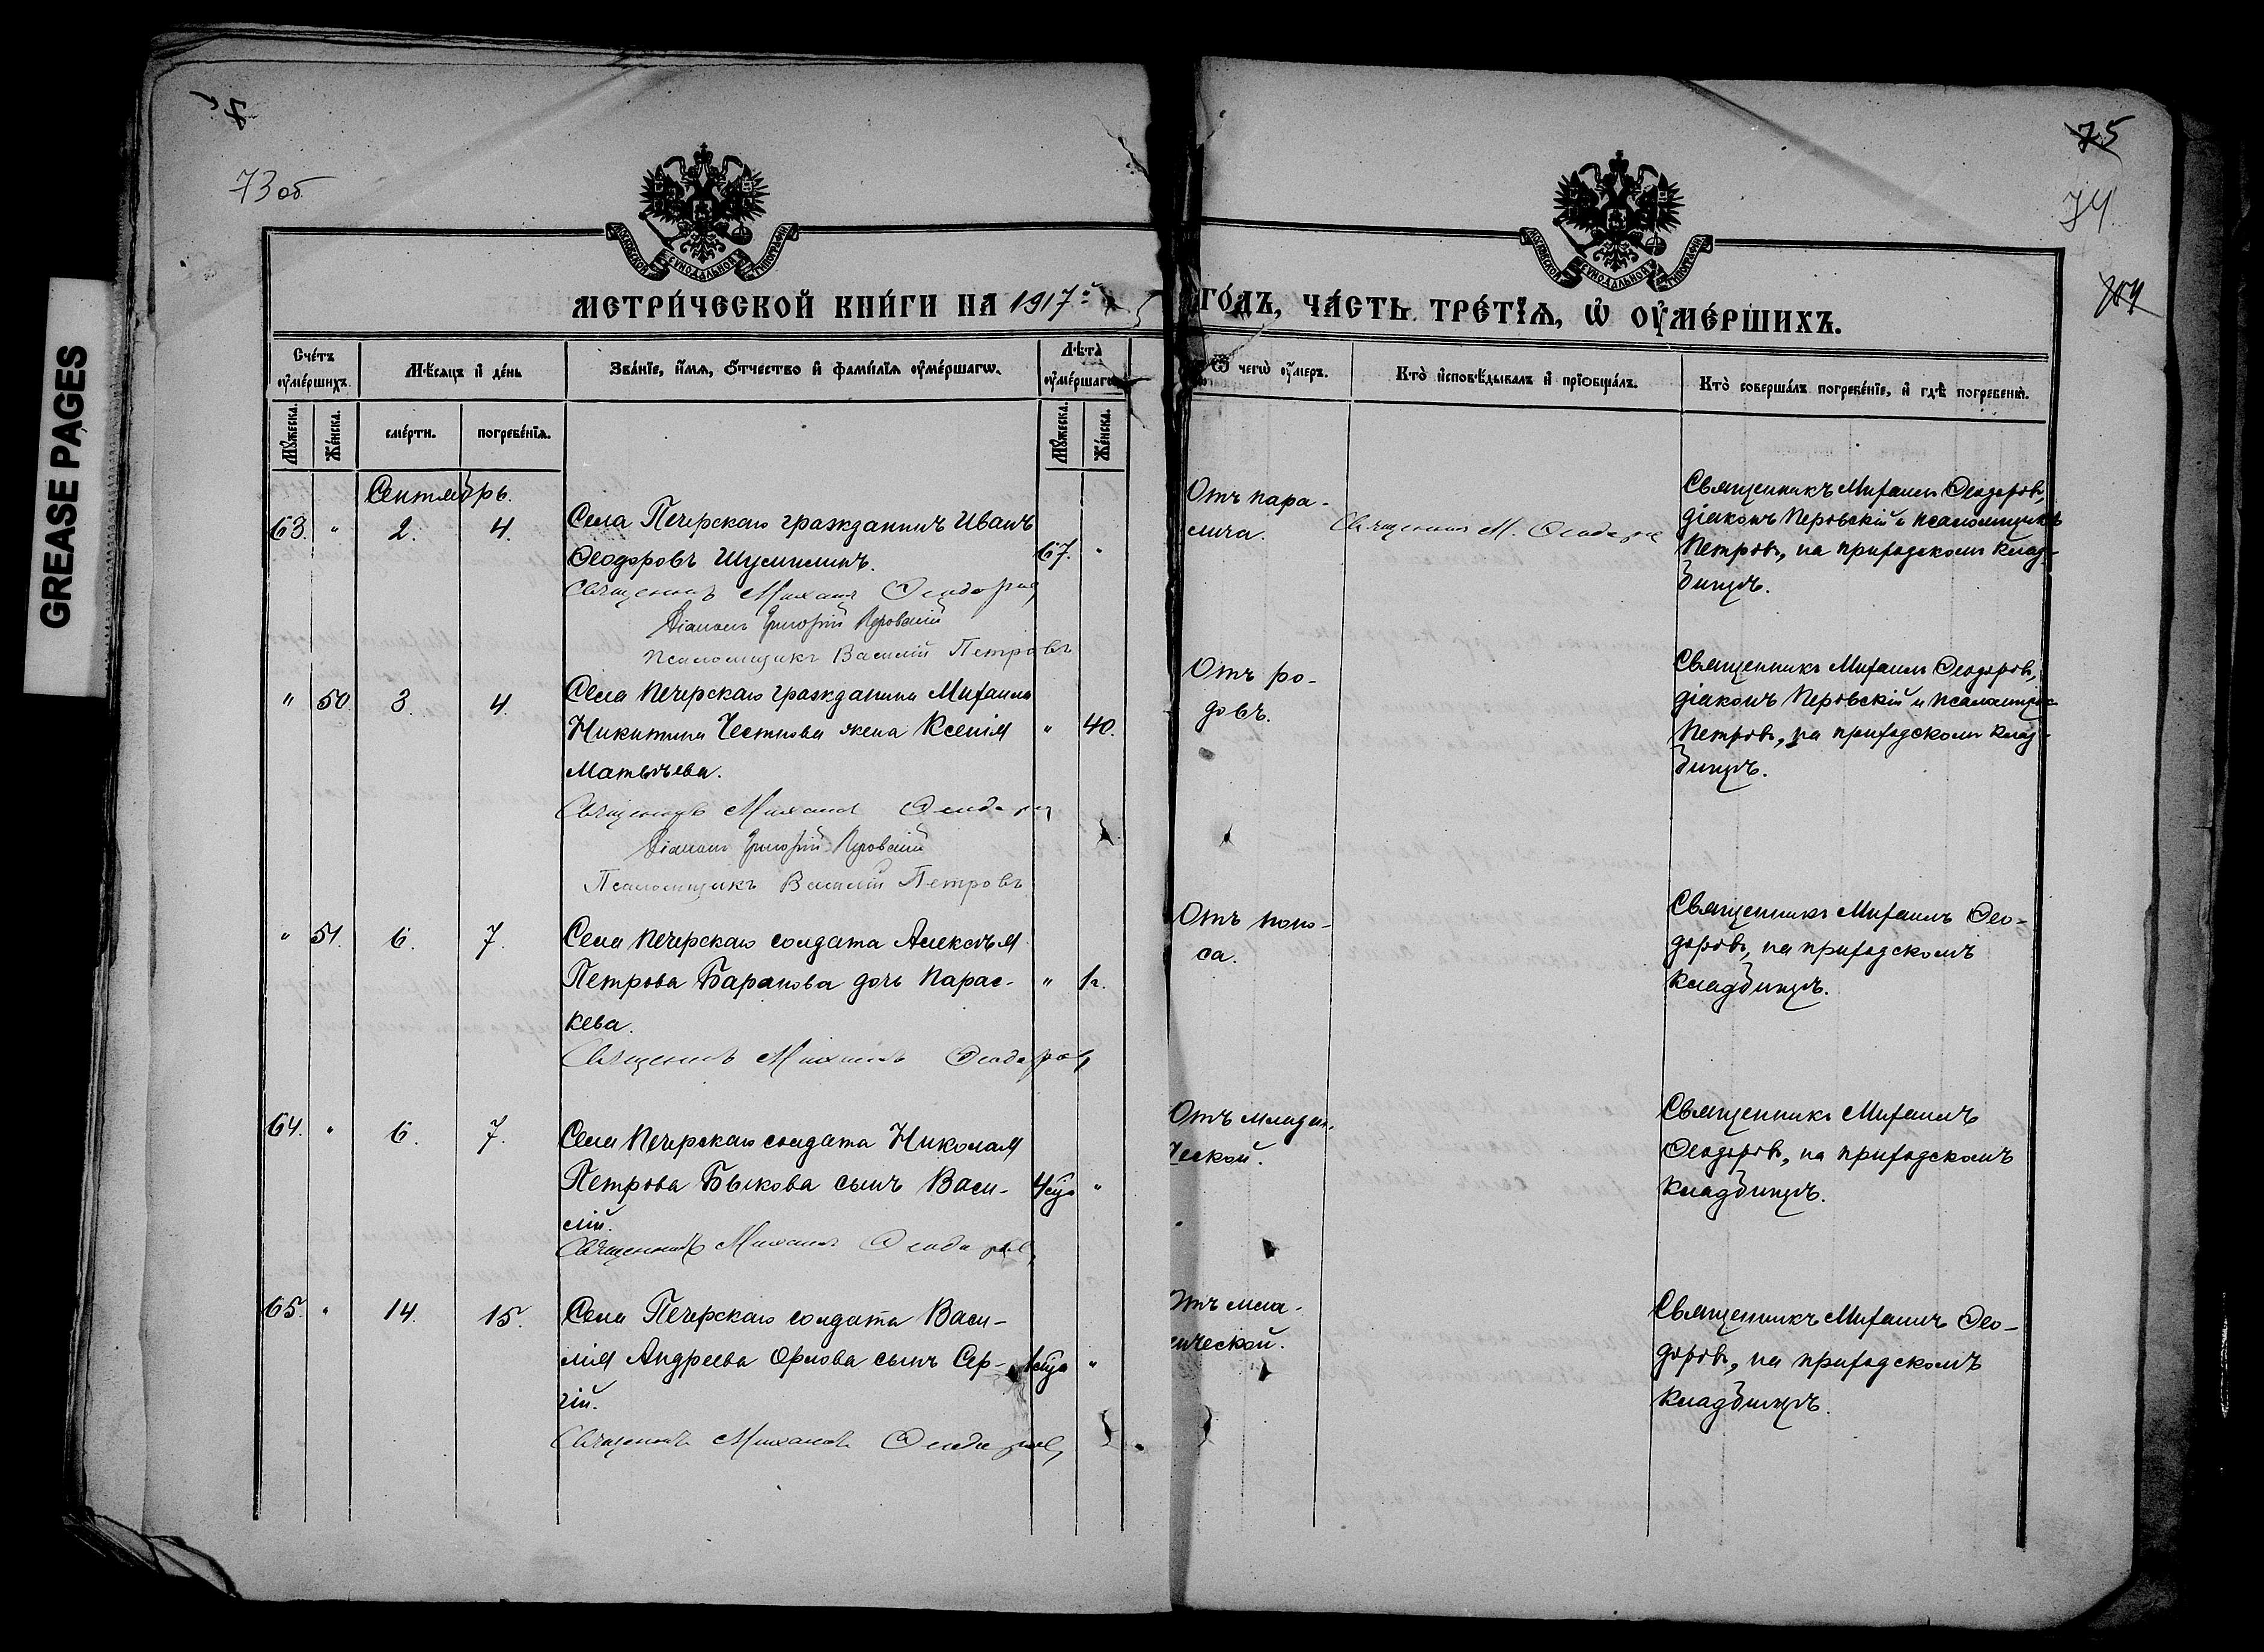 GREASE PAGES
73 об
75
74
МОСКОВСКОЙ СѴНОДАЛЬНОЙ ТИПОГРАФІИ
МОСКОВСКОЙ СѴНОДАЛЬНОЙ ТИПОГРАФІИ
МЕТРИ́ЧЕСКОЙ КНИ́ГИ НА 1917й ГО́ДЪ, ЧА́СТЬ ТРЕ́ТІѦ, Ѡ҆ ОУ҆МЕ́РШИХЪ.
Сче́тъ оу҆ме́ршихъ.
Мѣ́сяцъ и҆ де́нь
Зва́нїе, и҆́мѧ, ѻ҆́тчество и҆ фами́лїѧ оу҆ме́ршагѡ.
Лѣ́та оу҆ме́ршагѡ
Ѿ чегѡ̀ оу҆́меръ.
Кто̀ и҆сповѣ́дывалъ и҆ прїѻбща́лъ.
Кто̀ соверша́лъ погребе́нїе, и҆ гдѣ̀ погребены̀.
Мꙋ́жеска.
Же́нска.
сме́рти.
погребе́нїѧ.
Мꙋ́жеска.
Же́нска.
Сентябрь.
63. " 2. 4. Села Печерскаго гражданинъ Иванъ
Ѳеодоровъ Шумилинъ. 67. "
Священникъ Михаилъ Ѳеодоровъ
Діаконъ Григорій Перовскій
Псаломщикъ Василій Петровъ
Отъ пара-
лича.
Священникъ М. Ѳеодоров
Священникъ Михаилъ Ѳеодоровъ,
діаконъ Перовскій и псаломщикъ
Петровъ, на приходскомъ клад-
бищѣ.
" 50. 3. 4. Села Печерскаго гражданина Михаила
Никитина Честнова жена Ксенія " 40.
Матвѣева.
Священникъ Михаилъ Ѳеодоров
Діаконъ Григорій Перовскій
Псаломщикъ Василій Петровъ
Отъ ро-
довъ.
Священникъ Михаилъ Ѳеодоровъ,
діаконъ Перовскій и псаломщикъ
Петровъ, на приходскомъ клад-
бищѣ.
" 51. 6. 7. Села Печерскаго солдата Алексѣя
Петрова Баранова дочь Парас- " 1г.
кева.
Священникъ Михаилъ Ѳеодоровъ
Отъ поно-
са.
Священникъ Михаилъ Ѳео-
доровъ, на приходскомъ
кладбищѣ.
64. " 6. 7. Села Печерскаго солдата Николая
Петрова Быкова сынъ Васи- "
лій.
Священникъ Михаилъ Ѳеодоровъ
Отъ младен-
ческой.
Священникъ Михаилъ
Ѳеодоровъ, на приходскомъ
кладбищѣ.
65. " 14. 15. Села Печерскаго солдата Васи-
лія Андреева Орлова сынъ Сер- "
гій.
Священникъ Михаилъ Ѳеодоровъ
Отъ мла-
нческой.
Священникъ Михаилъ Ѳео-
доровъ, на приходскомъ
кладбищѣ.